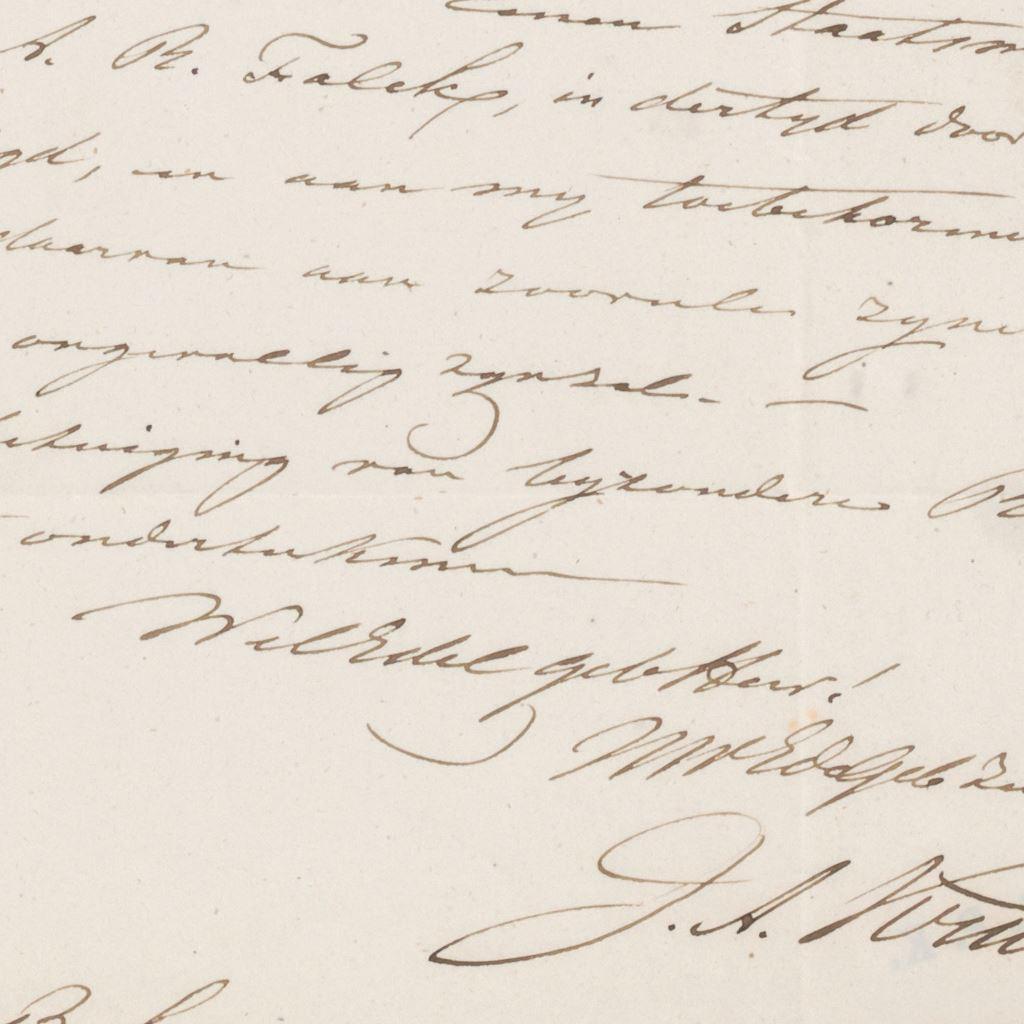 eenen Staatsm
A. R. Falck, in dertyd door
gd, en aan my toebehoorend
daarvan aan zoovele zyne
ongevallig zyn zal. —
betuiging van byzondere
ondertekenen
WelEdelgeb Heer!
UWEdGeb
J. A.